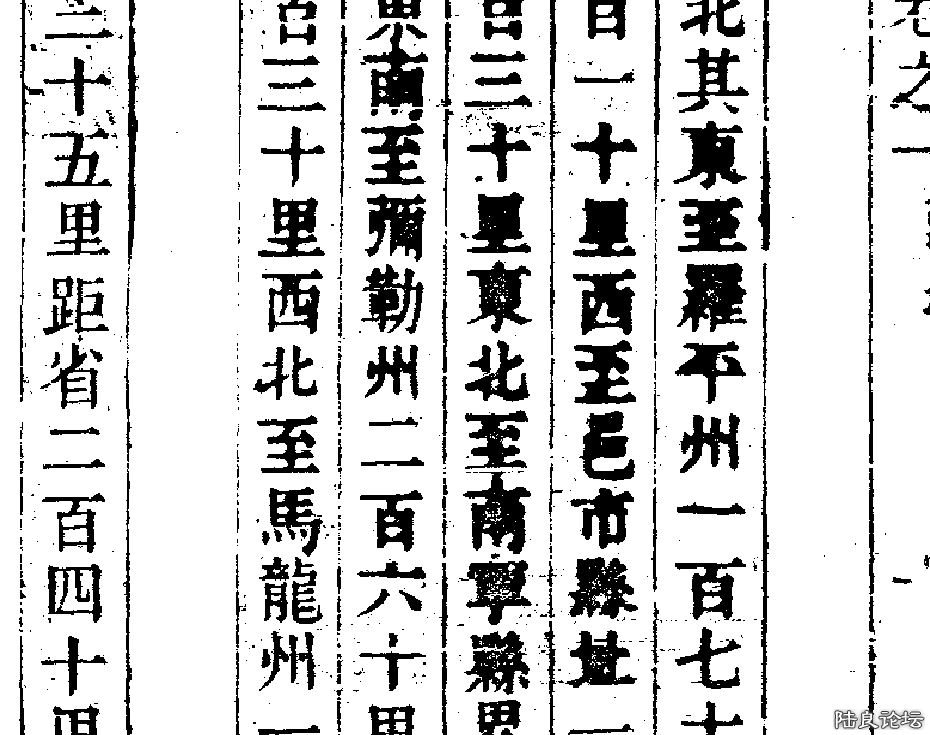 卷之一
北其東至羅平州一百七十
百一十里西至邑市縣址一
三十里東北至南寧縣界
東南至彌勒州二百六十里
三十里西北至馬龍州一
三十五里距省二百四十里
陆良论坛